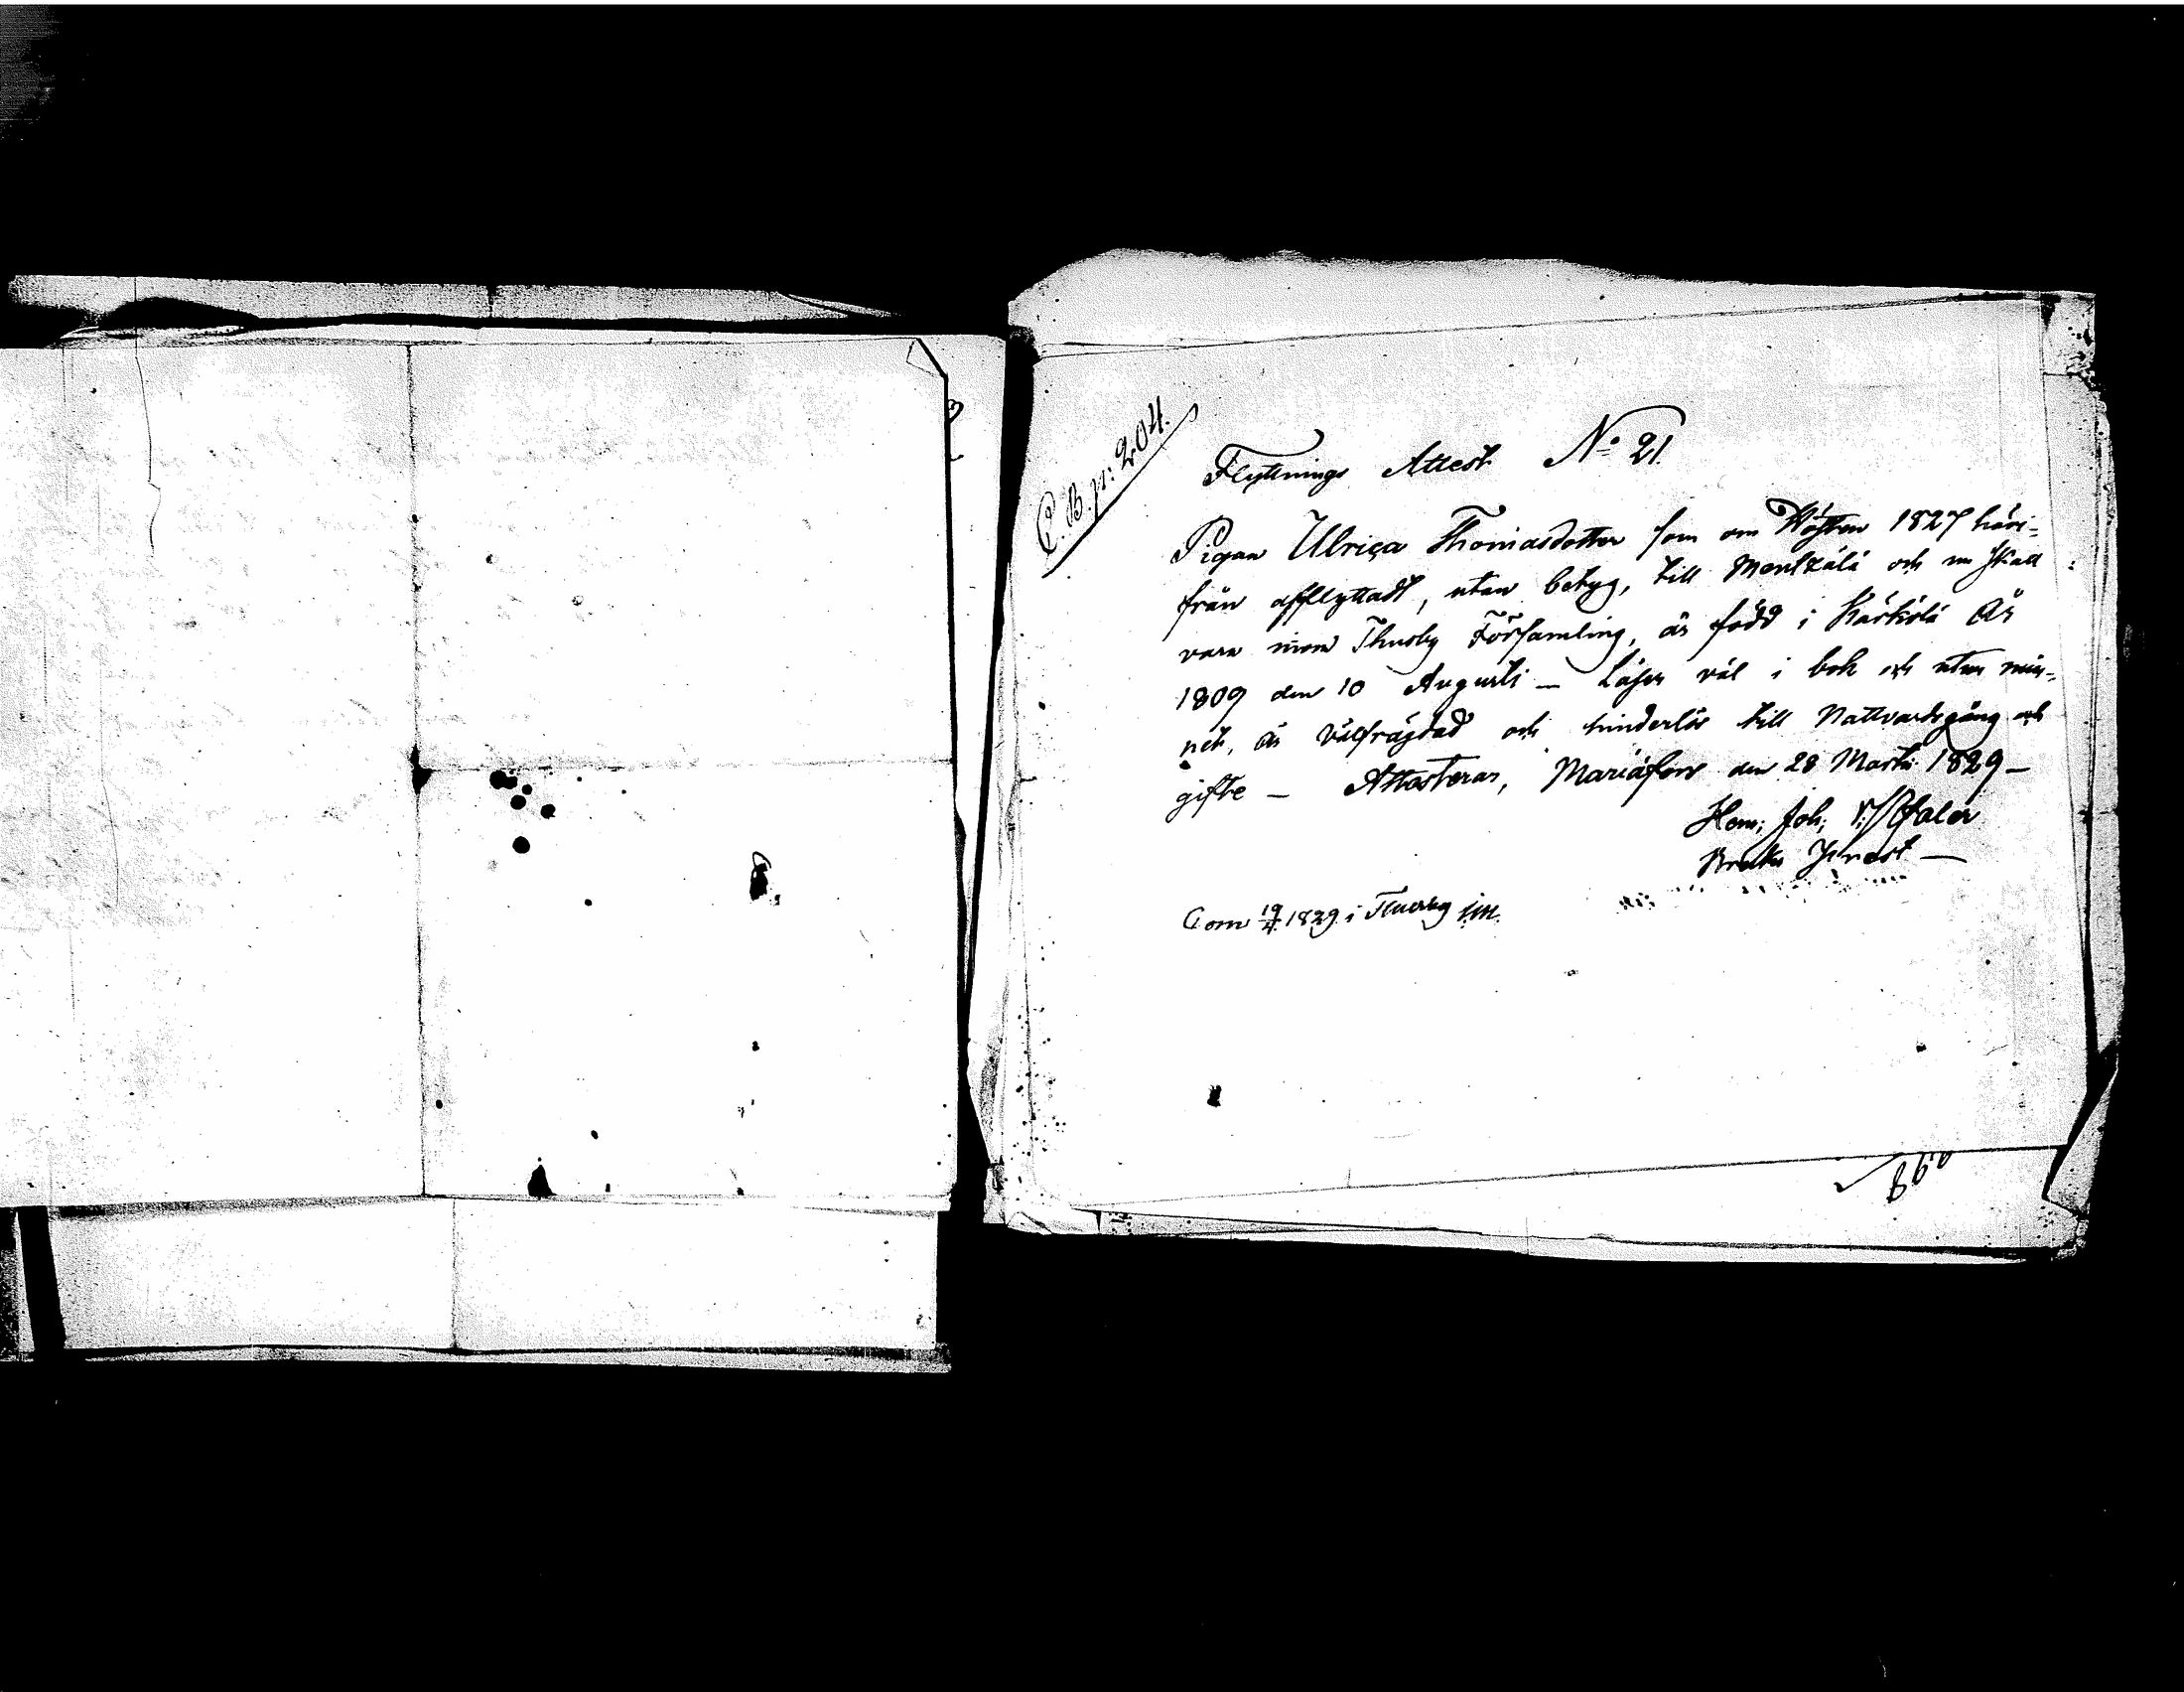 C. B. p: 204.
Flyttnings Attest No 21.
Pigan Ulrica Thomasdotter som om Hösten 1827 häri-
från afflyttadt, utan betyg, till Mentzälä och nu skall
vara inom Thusby Församling, är född i Kärkölä År
1809 den 10 Augusti — Läser väl i bok och utan min-
net, är välfrägdad och hinderlös till Nattvardsgång och
gifte — Attesteras, Mariäfors den 28 Martii 1829 —
Hen: Joh: 
Bruks Prest —
Com 19/4 1829 i Thusby